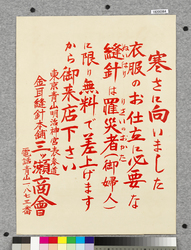 寒さに向いました
衣服のお仕立に必要な
縫針は罹災者(御婦人)
に限り無料で差上げます
から御来店下さい
東京青山明治神宮表参道
金目縫針本舗三ツ瀬商會
電話青山一八七三番